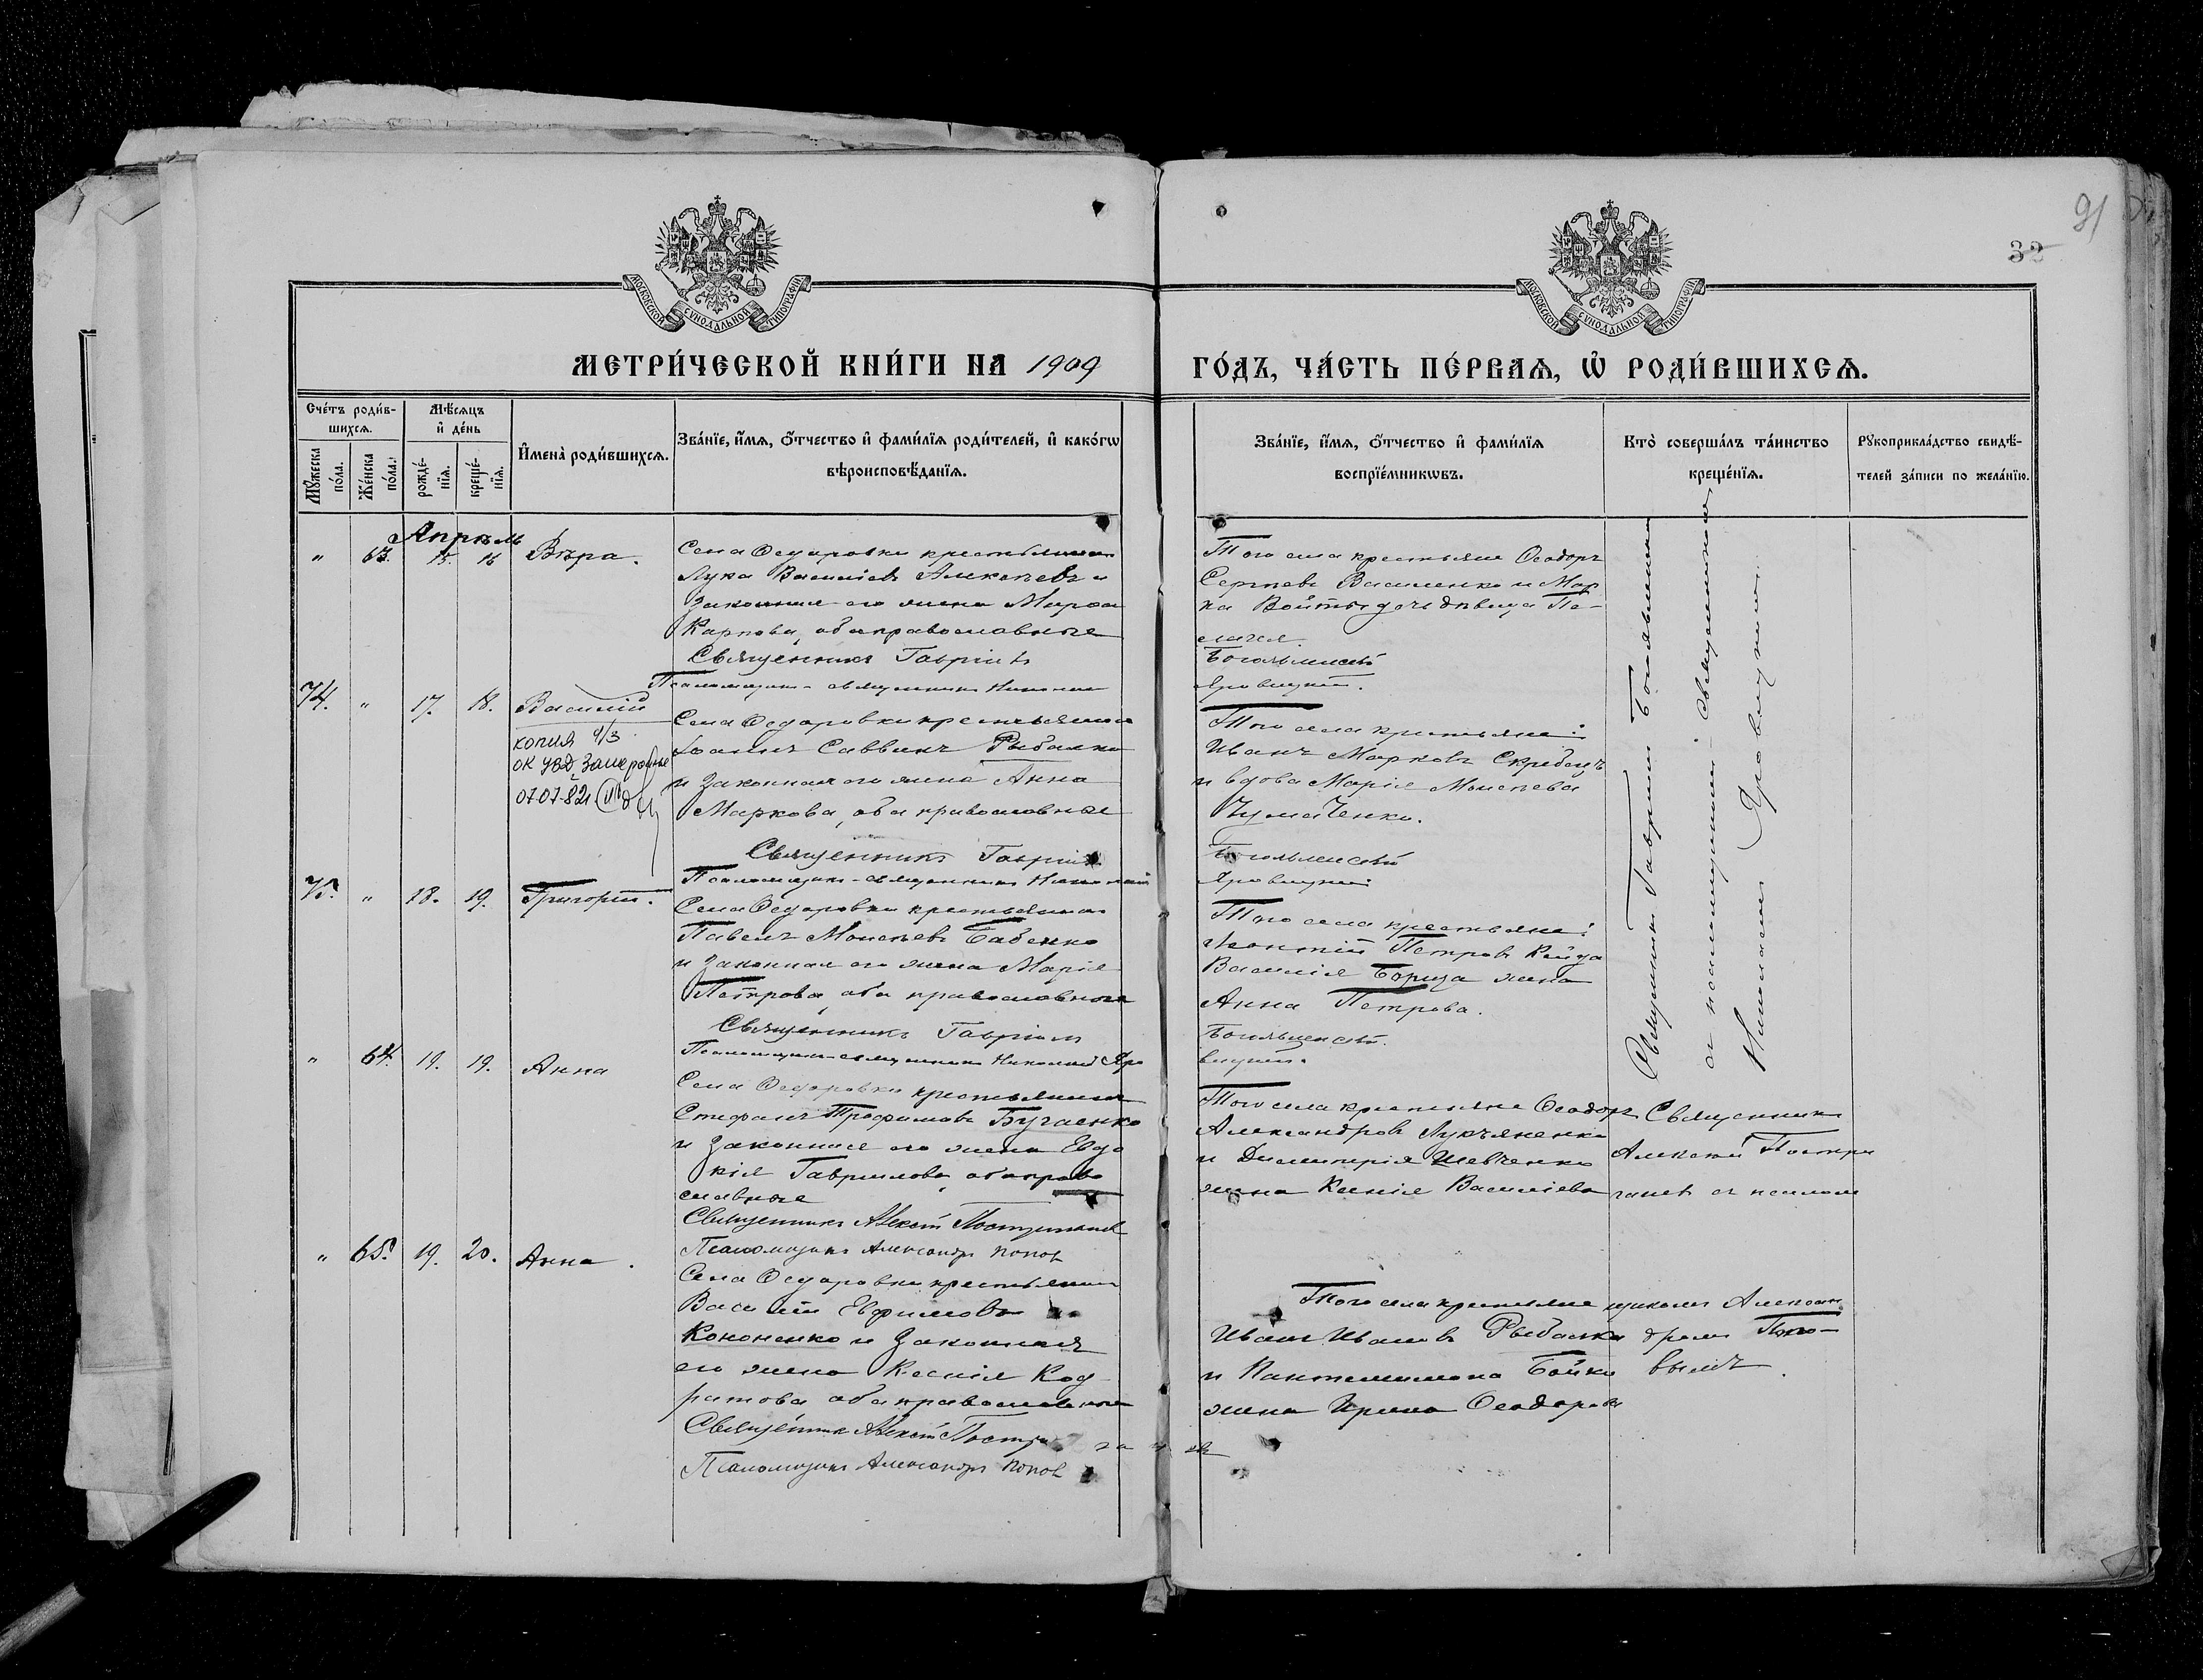 91
32
МОСКОВСКОЙ СѴНОДАЛЬНОЙ ТИПОГРАФІИ
МОСКОВСКОЙ СѴНОДАЛЬНОЙ ТИПОГРАФІИ
МЕТРИ́ЧЕСКОЙ КНИ́ГИ НА 1909 ГО́ДЪ, ЧА́СТЬ ПЕ́РВАѦ, Ѽ РОДИ́ВШИХСѦ.
Сче́тъ роди́в-
шихсѧ.
Мꙋ́жеска по́ла.
Же́нска по́ла.
Мѣ́сѧцъ
и҆ де́нь
рожде́-нїѧ.
креще́-нїѧ.
И҆мена̀ роди́вшихсѧ.
Зва́нїе, и҆́мѧ, ѻ҆́тчество и҆ фами́лїѧ роди́телей, и҆ како́гѡ
вѣроисповѣ́данїѧ.
Зва́нїе, и҆́мѧ, ѻ҆́тчество и҆ фами́лїѧ
воспрїе́мникѡвъ.
Кто̀ соверша́лъ та́инство
креще́нїѧ.
Рꙋкоприкла́дство свидѣ́-
телей за́писи по жела́нїю.
Апрѣль
" 63. 15. 16 Вѣра.
Села Ѳедоровки крестьянинъ
Лука Василіевъ Алексѣевъ и
законная его жена Марѳа
Карпова, оба православные
Священникъ Гавріилъ
Псаломщикъ-священникъ Николай
Того села крестьяне Ѳеодоръ
Сергѣевъ Василенко и Мар
ка Войты дочь дѣвица Пе-
лагея
Богоявленскій
Яровицкій.
74. " 17. 18. Василій
копия
ОК УВД Запорожье
07.07.82
Села Ѳедоровки крестьянинъ
Іоаннъ Саввинъ Рыбалка
и законная его жена Анна
Маркова, оба православные
Священникъ Гавріилъ
Псаломщикъ-священникъ Николай
Того села крестьяне:
Иванъ Марковъ Скребецъ
и вдова Марія Моисѣева
Чумаченко.
Богоявленскій
Яровицкій
75. " 18. 19. Григорій.
Села Ѳедоровки крестьянинъ
Павелъ Моисѣевъ Бабенко
и законная его жена Марія
Петрова, оба православные
Священникъ Гавріилъ
Псаломщикъ-священникъ Николай Яро
Того села крестьяне:
Леонтій Петровъ Кайда
Василія Борща жена
Анна Петрова.
Богоявленскій.
вицкій.
Священникъ Гавріилъ Богоявленскій
съ псаломщикомъ-священникомъ
Николаемъ Яровицкимъ.
" 64. 19. 19. Анна
Села Ѳедоровки крестьянинъ
Стефанъ Трофимовъ Бугаенко
и законная его жена Евдо
кія Гаврилова, оба право
славные
Священникъ Алексѣй Постригачев
Псаломщикъ Александръ Попов
Того села крестьяне Ѳеодоръ
Александровъ Лукъяненко
и Димитрія Шевченко
жена Ксенія Василіева
Священникъ
Алексѣй Постри
гачевъ съ псалом
" 65. 19. 20. Анна.
Села Ѳедоровки крестьянинъ
Василій Евфимовъ
Кононенко и законная
его жена Ксенія Код-
ратова оба православные
Священник Алексѣй Пострига чев
Псаломщикъ Александръ Попов
Того села крестьяне
Иванъ Ивановъ Рыбалка
и Пантелеимона Бойко
жена Ирина Ѳеодорова
щикомъ Алексан
дромъ Попо-
вымъ.